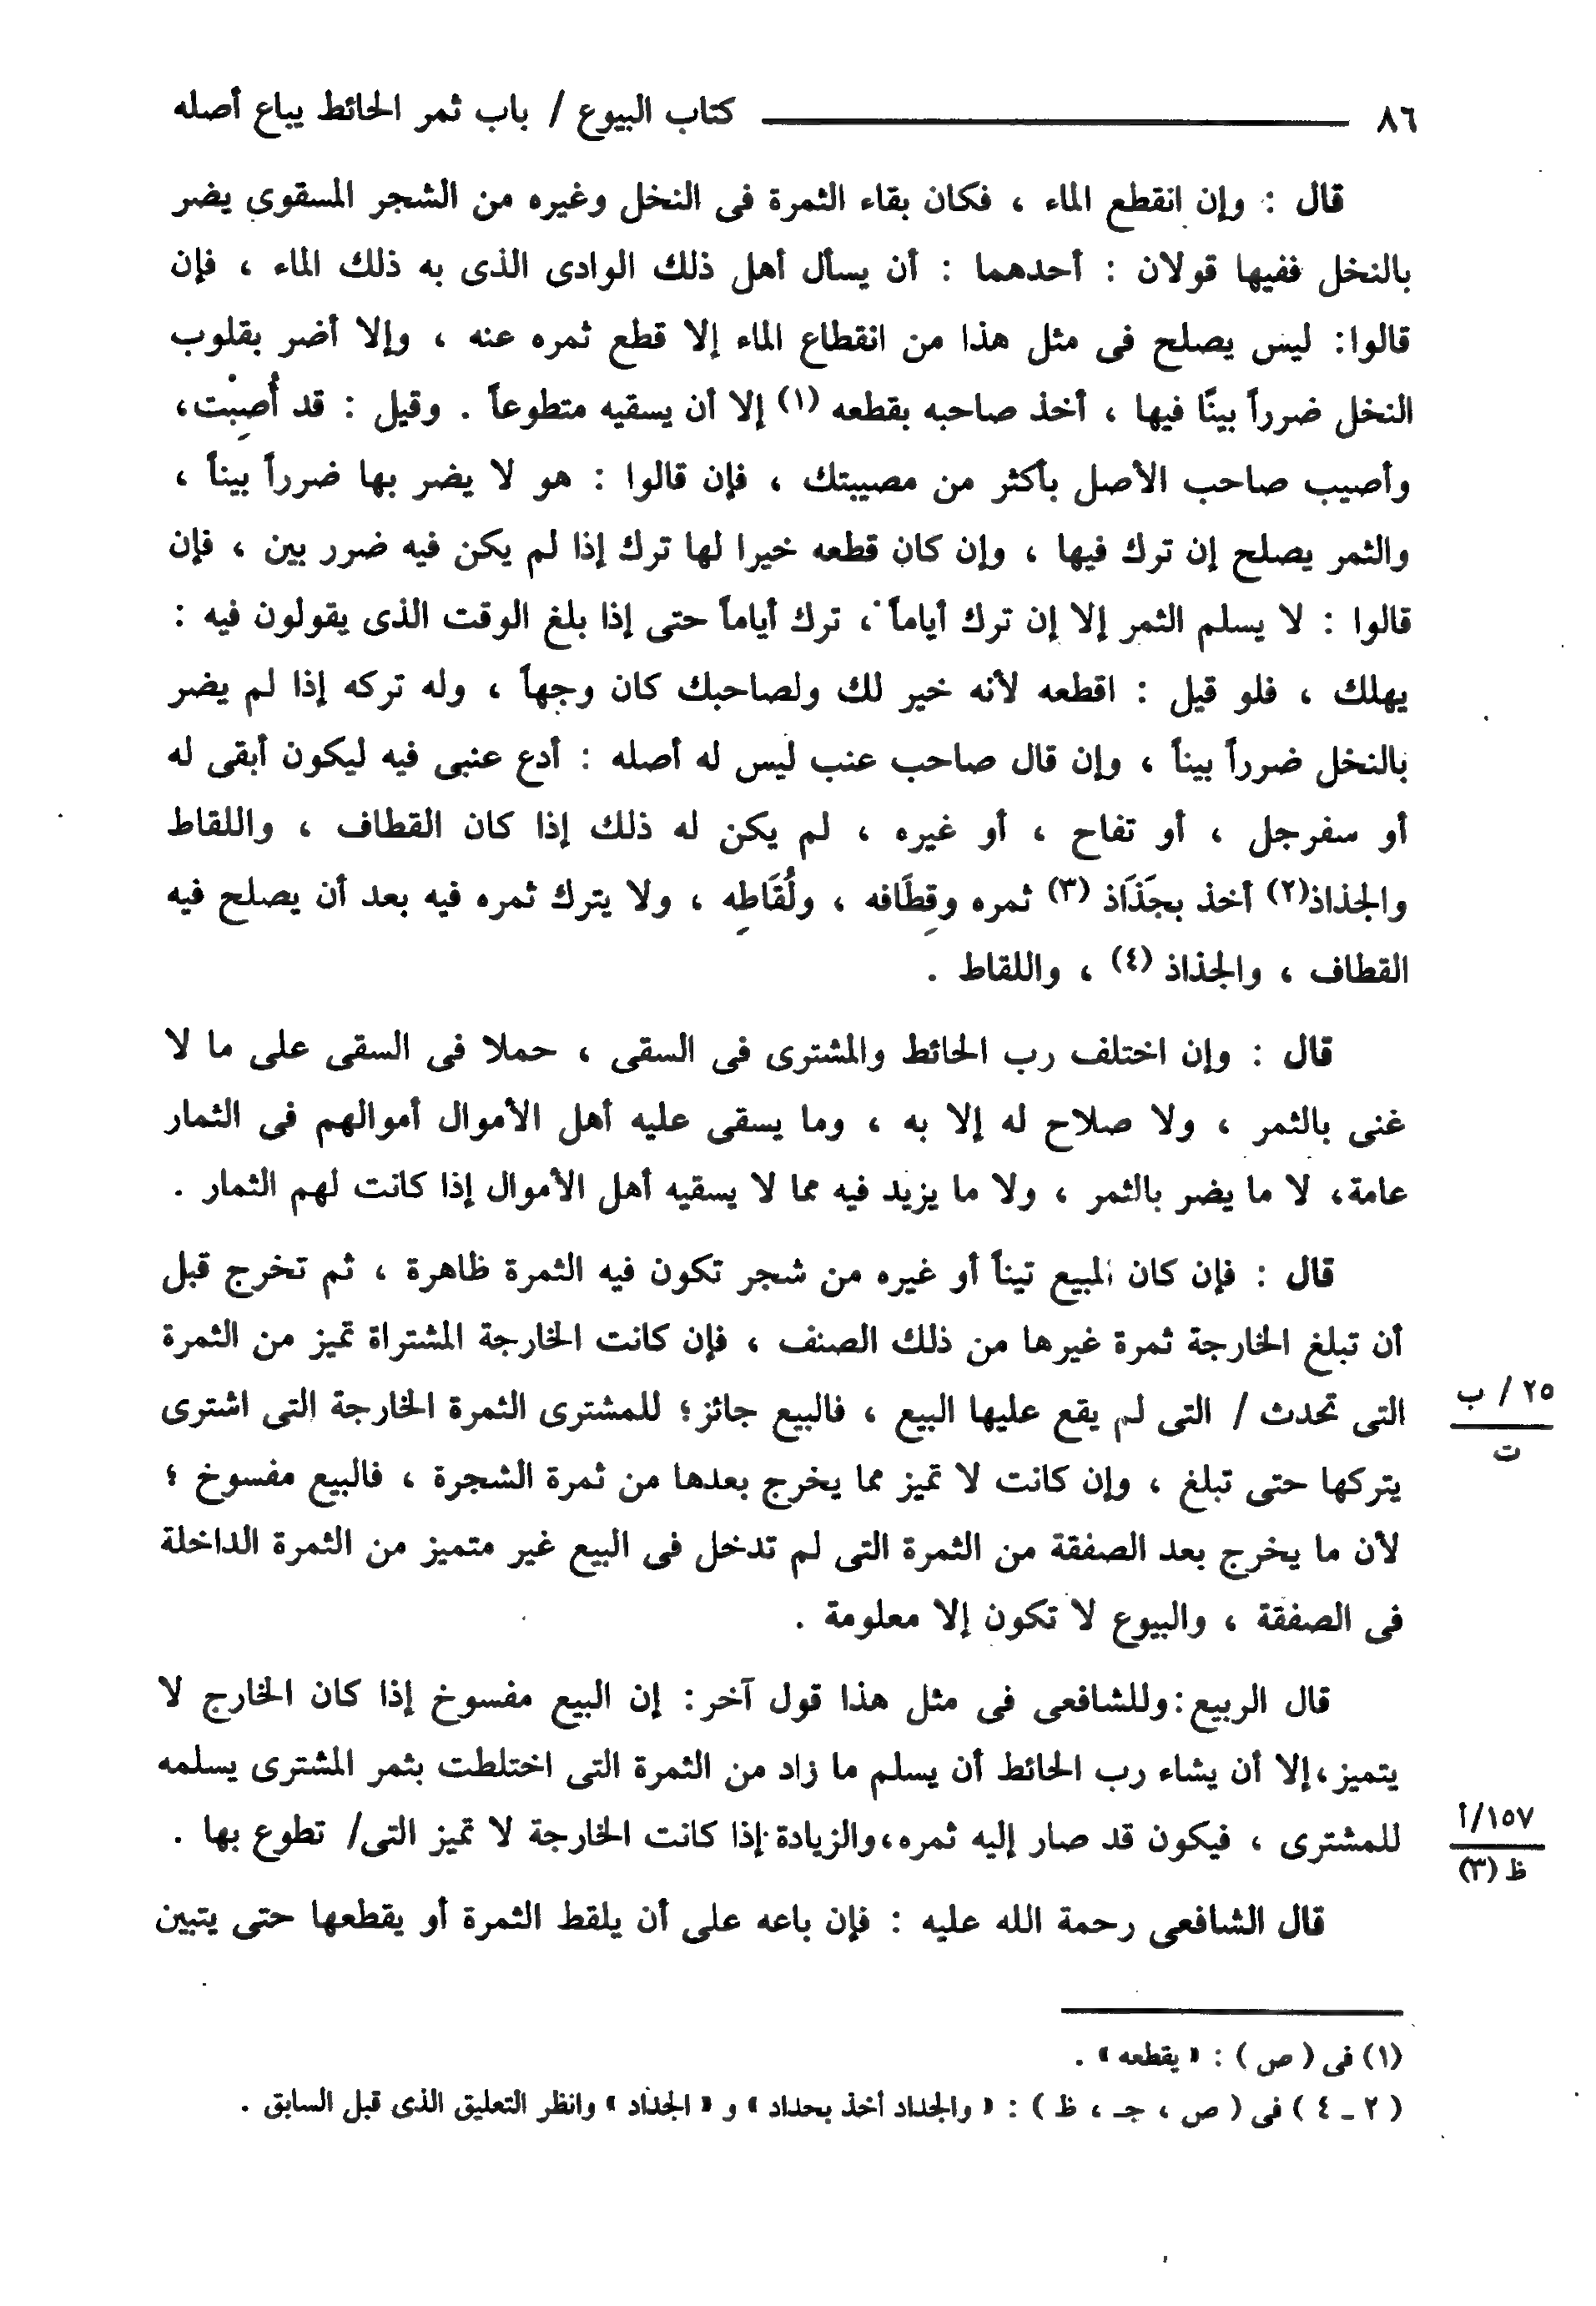 ٨٦ كتاب البيوع / باب ثمر الحائط يباع أصله
قال : وإن انقطع الماء ، فكان بقاء الثمرة فى النخل وغيره من الشجر المسقوى يضر
بالنخل ففيها قولان : أحدهما : أن يسأل أهل ذلك الوادى الذى به ذلك الماء ، فإن
قالوا: ليس يصلح فى مثل هذا من انقطاع الماء إلا قطع ثمره عنه ، وإلا أضر بقلوب
النخل ضرراً بينًا فيها ، أخذ صاحبه بقطعه (١) إلا أن يسقيه متطوعاً . وقيل : قد أُصِبْت،
وأصيب صاحب الأصل بأكثر من مصيبتك ، فإن قالوا : هو لا يضر بها ضرراً بيناً ،
والثمر يصلح إن ترك فيها ، وإن كان قطعه خيرا لها ترك إذا لم يكن فيه ضرر بين ، فإن
قالوا : لا يسلم الثمر إلا إن ترك أياماً ، ترك أياماً حتى إذا بلغ الوقت الذى يقولون فيه :
يهلك ، فلو قيل : اقطعه لأنه خير لك ولصاحبك كان وجهاً ، وله تركه إذا لم يضر
بالنخل ضرراً بيناً ، وإن قال صاحب عنب ليس له أصله : أدع عنبى فيه ليكون أبقى له
أو سفرجل ، أو تفاح ، أو غيره ، لم يكن له ذلك إذا كان القطاف ، واللقاط
والجذاذ(٢) أخذ بجَذَاذ (٣) ثمره وقِطَافه ، ولُقَاطِه ، ولا يترك ثمره فيه بعد أن يصلح فيه
القطاف ، والجذاذ (٤) ، واللقاط .
قال : وإن اختلف رب الحائط والمشترى فى السقى ، حملا فى السقى على ما لا
غنى بالثمر ، ولا صلاح له إلا به ، وما يسقى عليه أهل الأموال أموالهم فى الثمار
عامة، لا ما يضر بالثمر ، ولا ما يزيد فيه مما لا يسقيه أهل الأموال إذا كانت لهم الثمار .
قال : فإن كان المبيع تيناً أو غيره من شجر تكون فيه الثمرة ظاهرة ، ثم تخرج قبل
أن تبلغ الخارجة ثمرة غيرها من ذلك الصنف ، فإن كانت الخارجة المشتراة تميز من الثمرة
التى تحدث / التى لم يقع عليها البيع ، فالبيع جائز؛ للمشترى الثمرة الخارجة التى اشترى
٢٥ / ب
ت
يتركها حتى تبلغ ، وإن كانت لا تميز مما يخرج بعدها من ثمرة الشجرة ، فالبيع مفسوخ ؛
لأن ما يخرج بعد الصفقة من الثمرة التى لم تدخل فى البيع غير متميز من الثمرة الداخلة
فى الصفقة ، والبيوع لا تكون إلا معلومة .
قال الربيع:وللشافعى فى مثل هذا قول آخر: إن البيع مفسوخ إذا كان الخارج لا
يتميز،إلا أن يشاء رب الحائط أن يسلم ما زاد من الثمرة التى اختلطت بثمر المشترى يسلمه
للمشترى ، فيكون قد صار إليه ثمره،والزيادة إذا كانت الخارجة لا تميز التى/ تطوع بها .
١٥٧/أ
ظ (٣)
قال الشافعى رحمة الله عليه : فإن باعه على أن يلقط الثمرة أو يقطعها حتى يتبين
(١) فى ( ص ) : « يقطعه » .
( ٢ ـ ٤ ) فى ( ص ، جـ ، ظ ) : « والجداد أخذ بحداد » و « الجذاد » وانظر التعليق الذى قبل السابق .